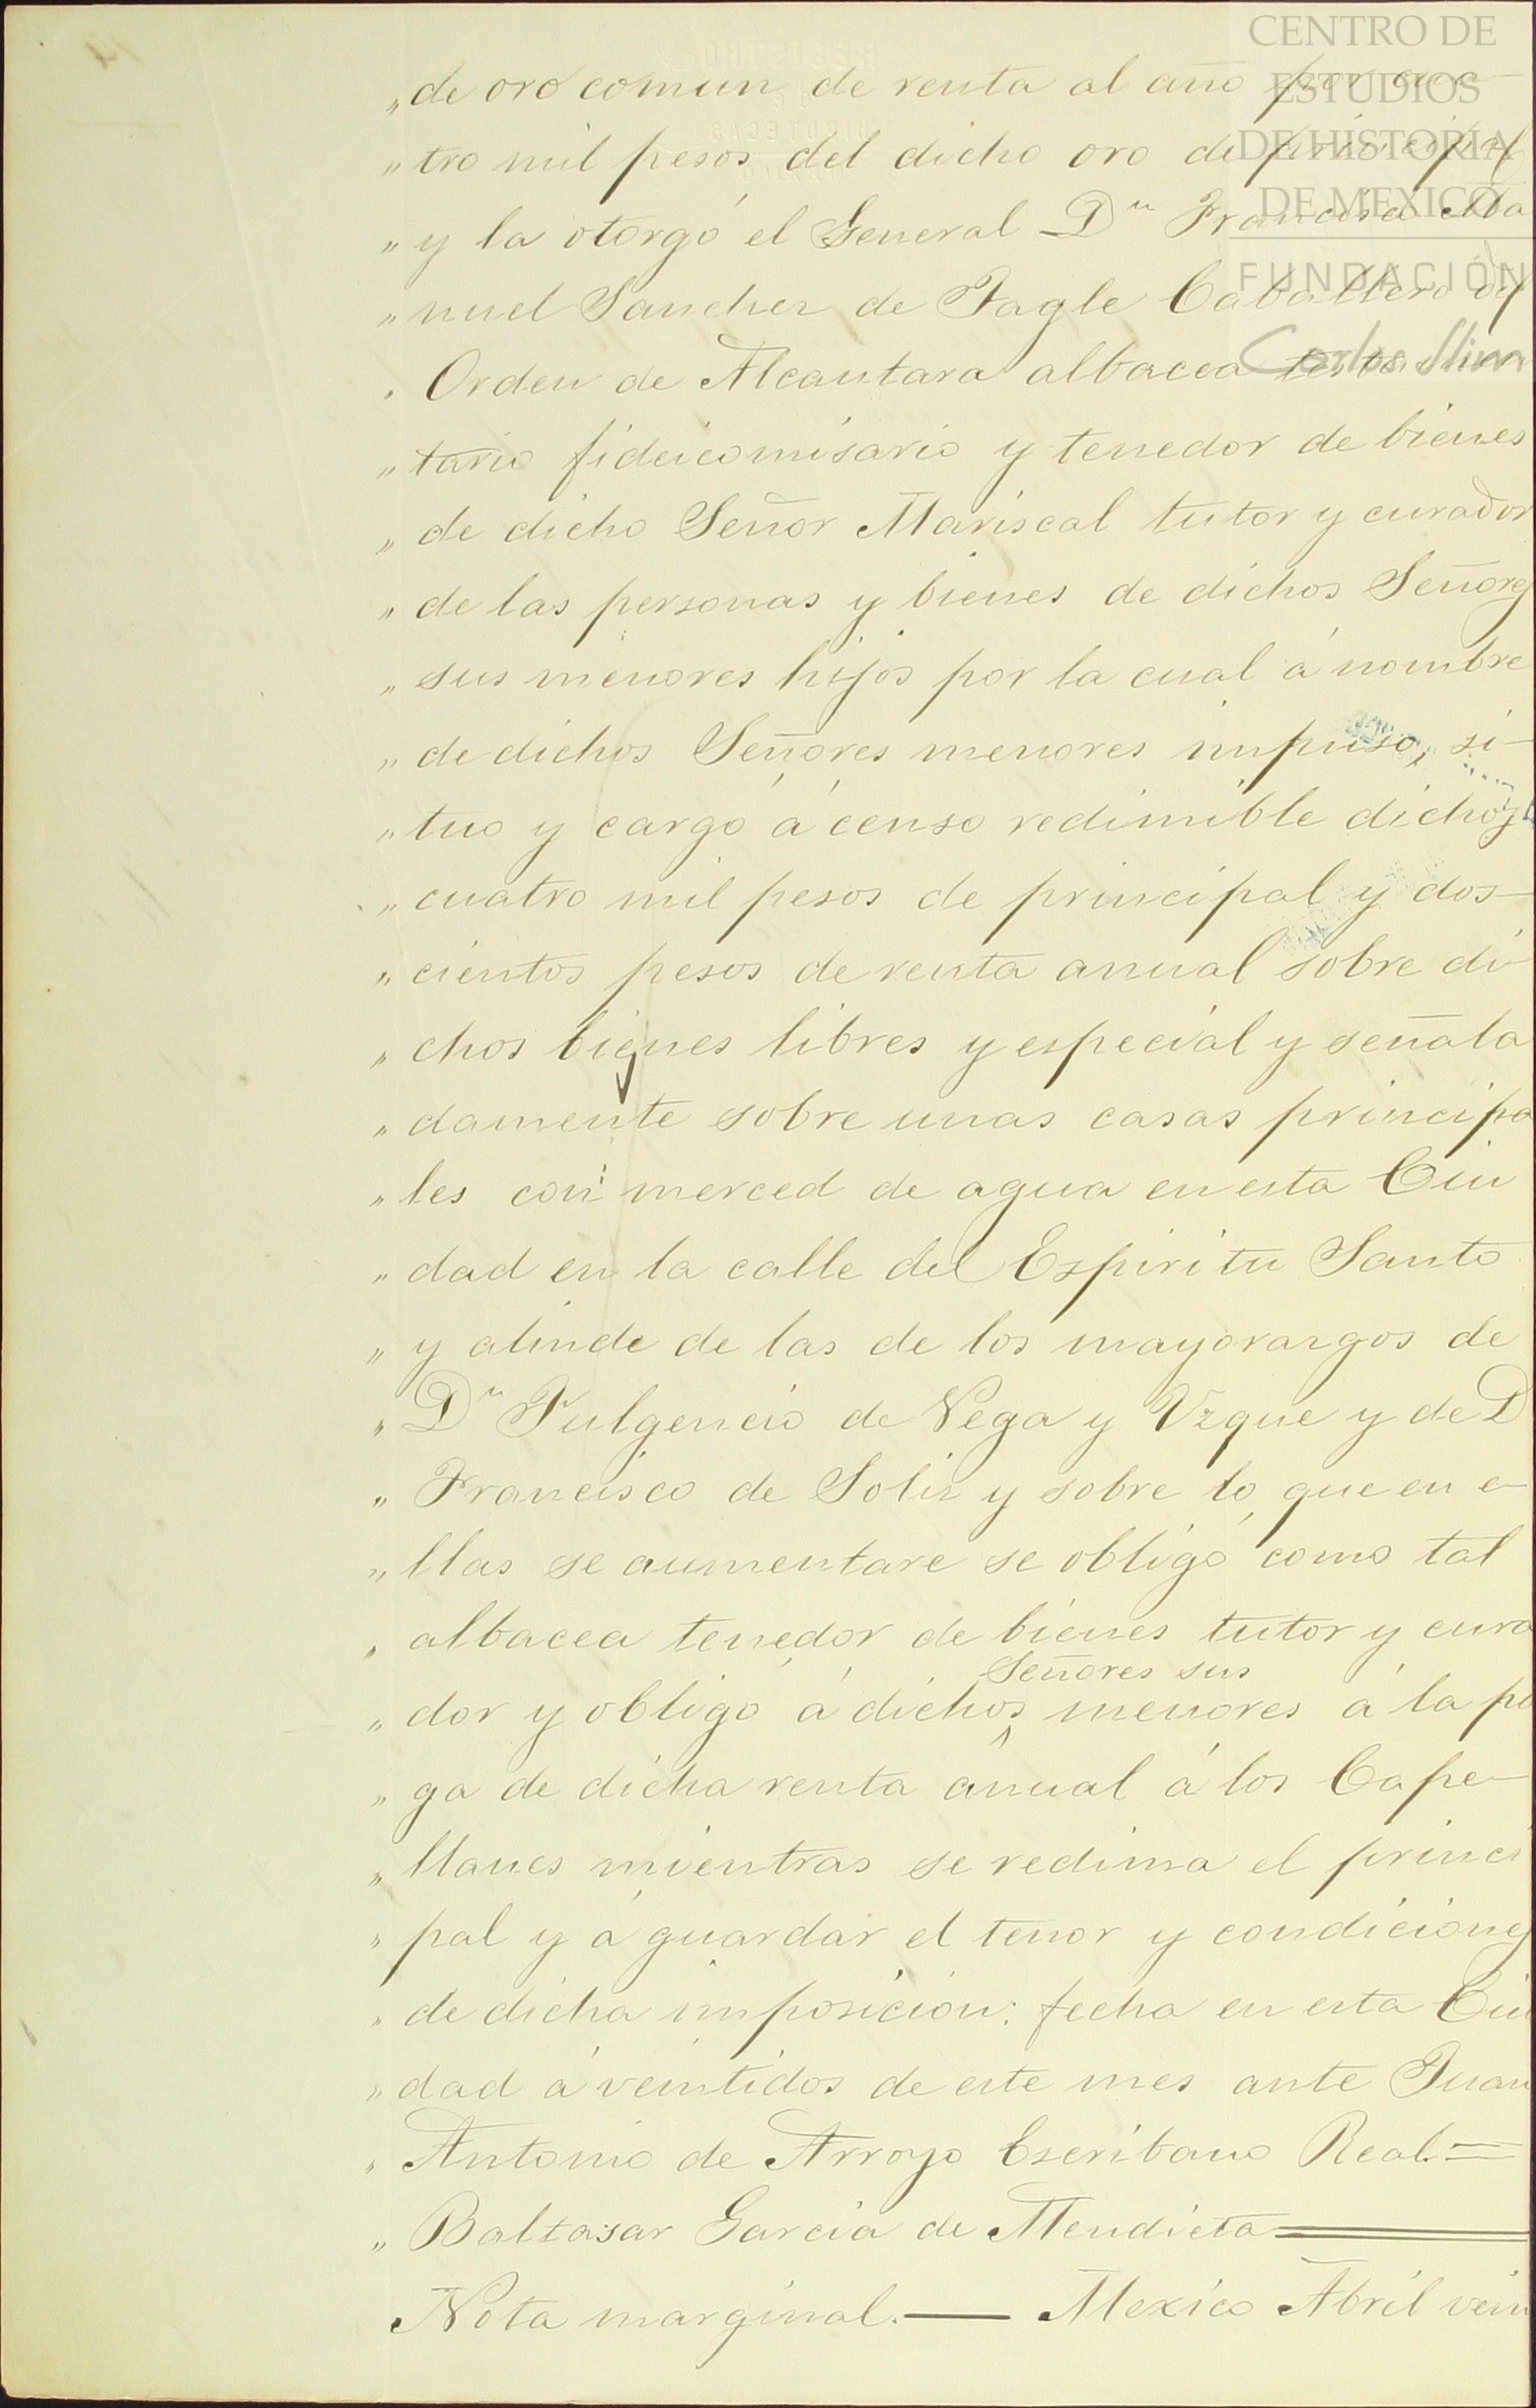 CENTRO DE
ESTUDIOS
DE HISTORIA
DE MEXICO
FUNDACIÓN
Carlos Slim
„ de oro comun de renta al año por cua-
„ tro mil pesos del dicho oro de principal
„ y la otorgó el General Dn Francisco Ma
„ nuel Sanchez de Tagle Caballero del
„ Orden de Alcantara albacea testamen
„ tario fideicomisario y tenedor de bienes
„ de dicho Señor Mariscal tutor y curador
„ de las personas y bienes de dichos Señores
„ sus menores hijos por la cual á nombre
„ de dichos Señores menores impuso, si-
„ tuó y cargó á censo redimible dichos
„ cuatro mil pesos de principal y dos-
„ cientos pesos de renta anual sobre di
„ chos bienes libres y especial y señala
„ damente sobre unas casas principa
„ les con merced de agua en esta Ciu
„ dad en la calle del Espiritu Santo
„ y alinde de las de los mayorazgos de
„ Dn Fulgencio de Vega y Vique y de D
„ Francisco de Solis y sobre lo que en e-
„ llas se aumentare se obligó como tal
„ albacea tenedor de bienes tutor y cura
„ dor y obligó á dichos Señores sus menores á la pa
„ ga de dicha renta anual á los Cape-
„ llanes mientras se redima el princi
„ pal y á guardar el tenor y condiciones
„ de dicha imposicion: fecha en esta Ciu
„ dad á veintidos de este mes ante Juan
„ Antonio de Arroyo Escribano Real.=
„ Baltasar Garcia de Mendieta=
Nota marginal.— Mexico Abril vein